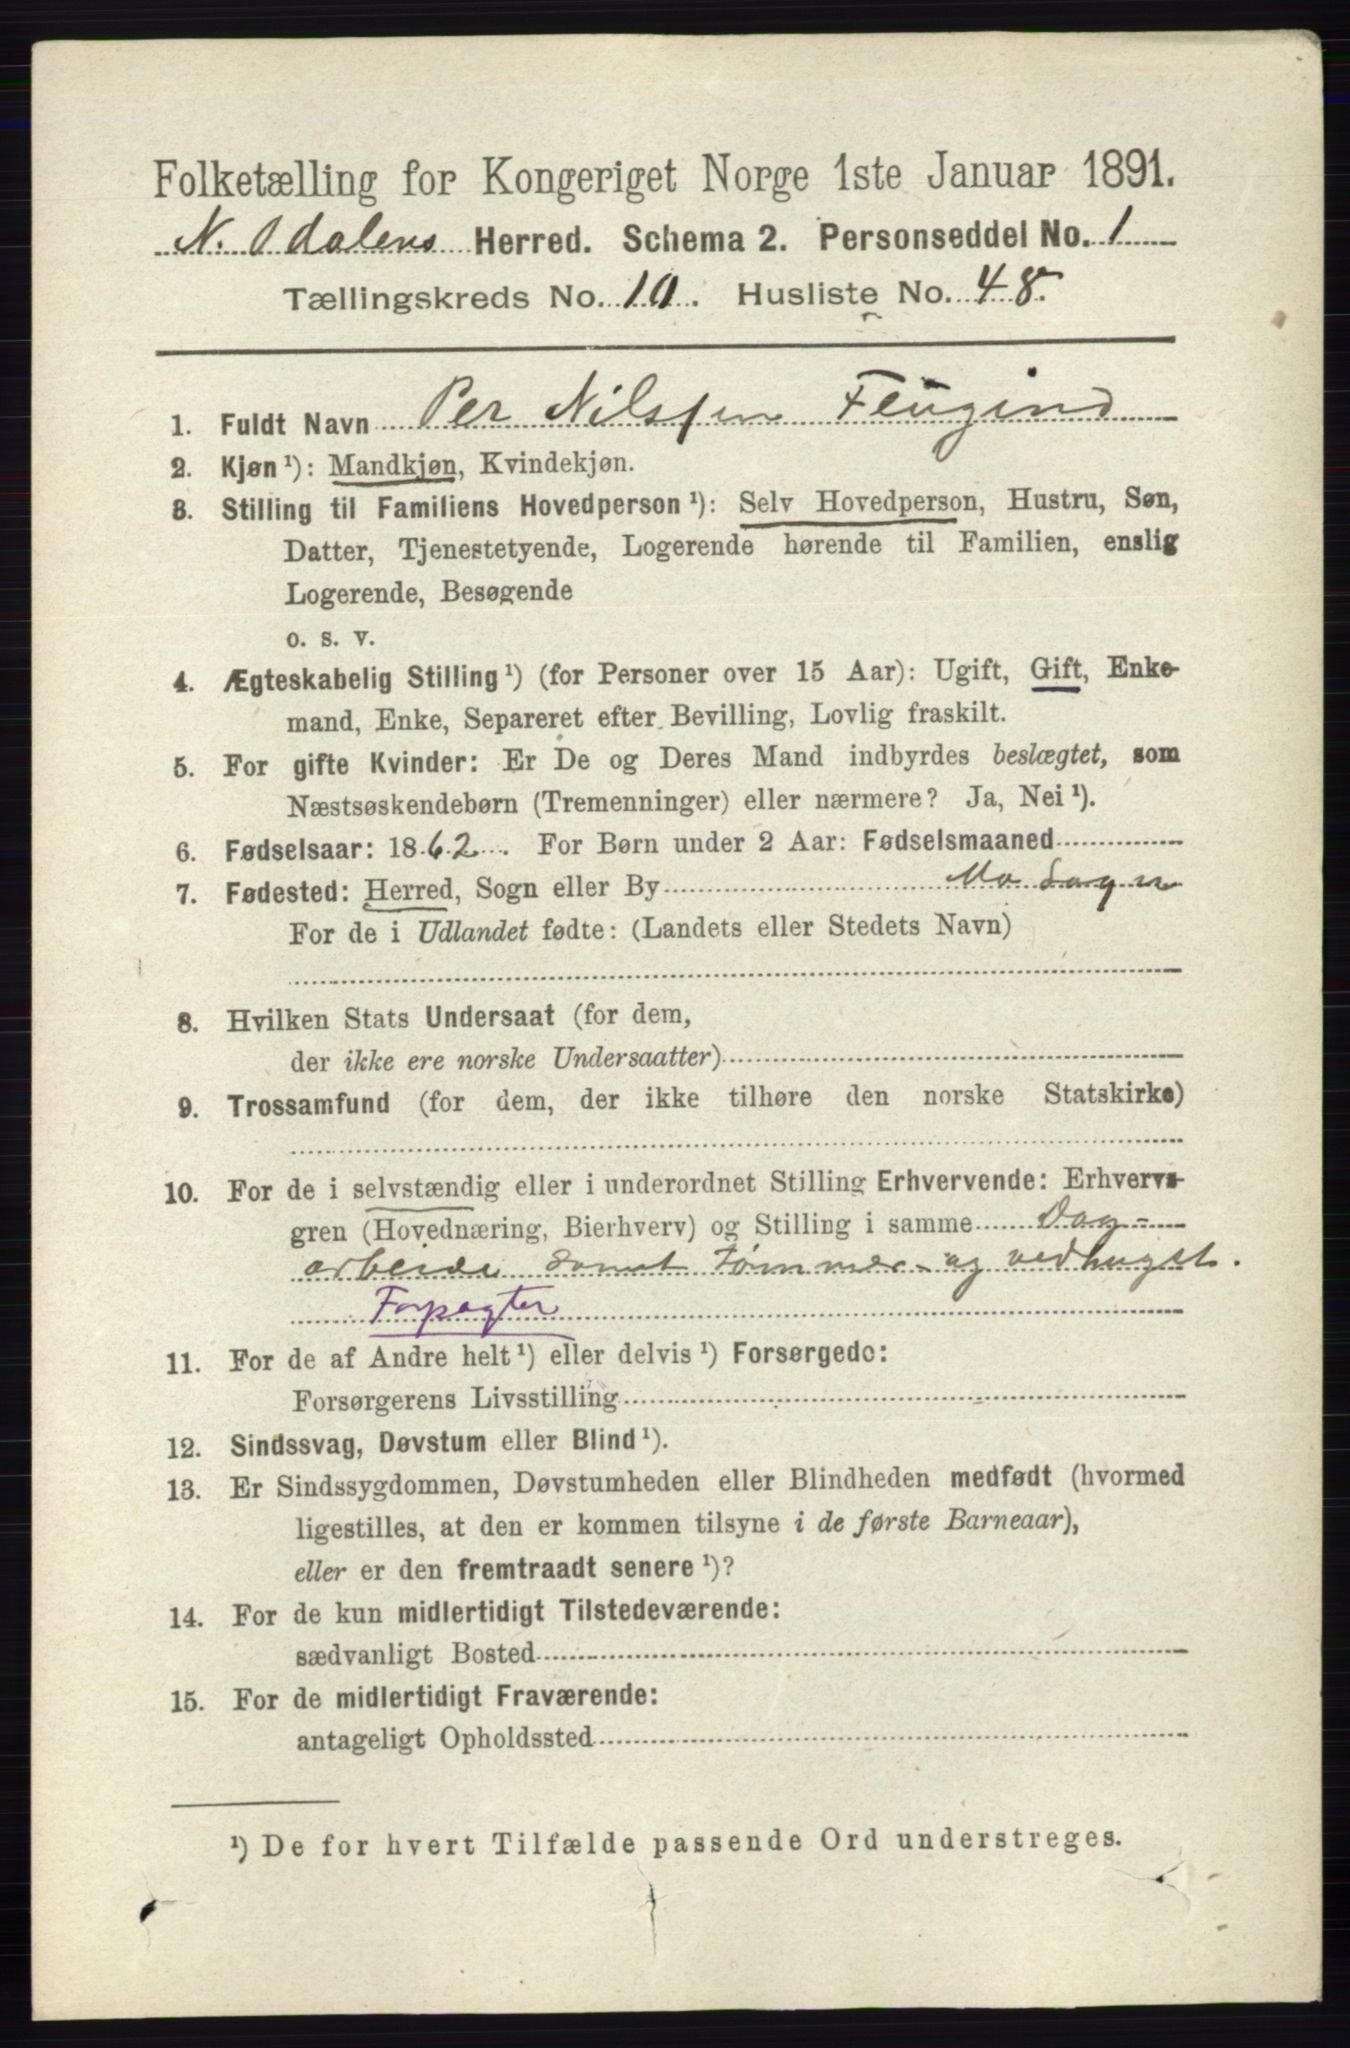 Folketælling for Kongeriget Norge 1ste Januar 1891.
N. Odalens Herred. Schema 2. Personseddel No. 1
Tællingskreds No. 10. Husliste No. 48.
1. Fuldt Navn Per Nilssen
2. Kjøn ¹): Mandkjøn, Kvindekjøn.
3. Stilling til Familiens Hovedperson ¹): Selv Hovedperson, Hustru, Søn,
Datter, Tjenestetyende, Logerende hørende til Familien, enslig
Logerende, Besøgende
o. s. v.
4. Ægteskabelig Stilling ¹) (for Personer over 15 Aar): Ugift, Gift, Enke-
mand, Enke, Separeret efter Bevilling, Lovlig fraskilt.
5. For gifte Kvinder: Er De og Deres Mand indbyrdes beslægtet, som
Næstsøskendebørn (Tremenninger) eller nærmere? Ja, Nei ¹).
6. Fødselsaar: 1862. For Børn under 2 Aar: Fødselsmaaned
7. Fødested: Herred, Sogn eller By Mo Sogn
For de i Udlandet fødte: (Landets eller Stedets Navn)
8. Hvilken Stats Undersaat (for dem,
der ikke ere norske Undersaatter)
9. Trossamfund (for dem, der ikke tilhøre den norske Statskirke)
10. For de i selvstændig eller i underordnet Stilling Erhvervende: Erhvervs-
gren (Hovednæring, Bierhverv) og Stilling i samme Dag-
arbeide samt Tømmer- og vedhugst.
Forpagter
11. For de af Andre helt ¹) eller delvis ¹) Forsørgede:
Forsørgerens Livsstilling
12. Sindssvag, Døvstum eller Blind ¹).
13. Er Sindssygdommen, Døvstumheden eller Blindheden medfødt (hvormed
ligestilles, at den er kommen tilsyne i de første Barneaar),
eller er den fremtraadt senere ¹)?
14. For de kun midlertidigt Tilstedeværende:
sædvanligt Bosted
15. For de midlertidigt Fraværende:
antageligt Opholdssted
¹) De for hvert Tilfælde passende Ord understreges.